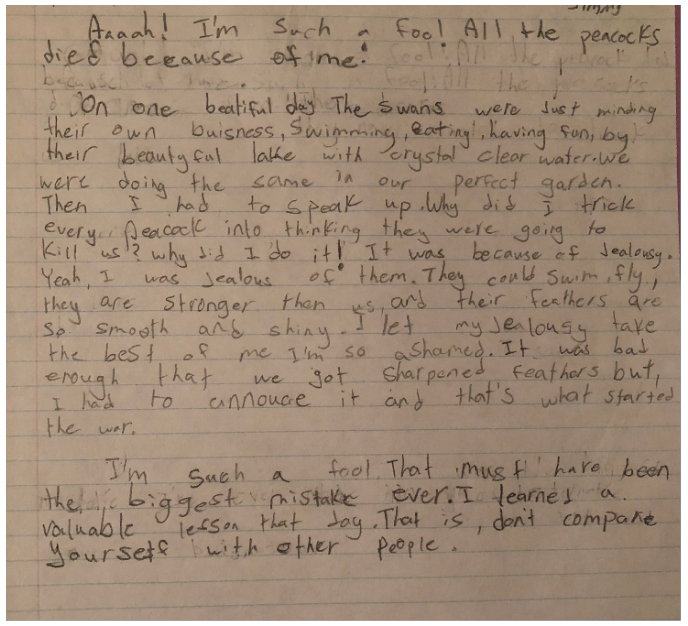 Aaaah! I'm Such a fool All the peacocks
died because of me!
On one beatiful day The Swans were Just minding
their own buisness, Swimming, eating, having fun, by
their beautyful lake with crystal clear water. We
were doing the same in our perfect garden.
Then I had to speak up. Why did I trick
every Peacock into thinking they were going to
Kill us? why did I do it! It was because of Jealousy.
Yeah, I was Jealous of them. They could swim, fly,
they are stronger then us, and their feathers are
so smooth and shiny. I let my Jealousy take
the best of me I'm so ashamed. It was bad
enough that we got sharpened feathers but,
I had to annouce it and that's what started
the war.
I'm Such a fool. That must have been
the biggest mistake ever. I learned a
valuable lesson that day. That is, don't compare
yourself with other people.